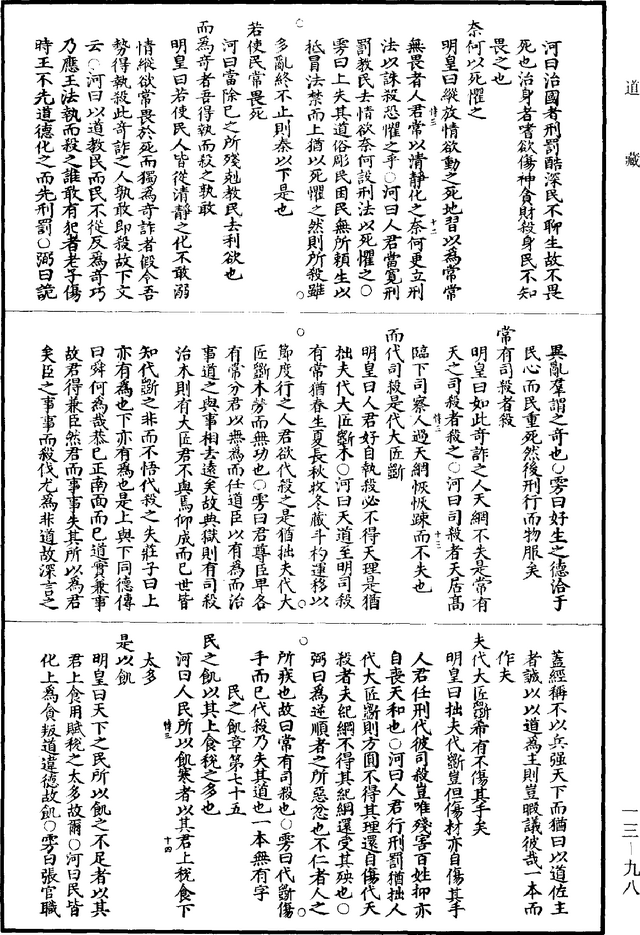 道藏
河曰治國者刑罰酷深民不聊生故不畏
死也治身者嗜欲傷神貪財殺身民不知
畏之也
奈何以死懼之
明皇曰縱放情欲動之死地習以爲常常
無畏者人君常以清靜化之奈何更立刑
法以誅殺恐懼之乎○河曰人君當寬刑
罰教民去情欲奈何設刑法以死懼之○
雱曰上失其道俗彫民困民無所賴生以
抵冒法禁而上猶以死懼之然則所殺雖
多亂終不止則秦以下是也
若使民常畏死
河曰當除已之所殘剋教民去利欲也
而爲奇者吾得執而殺之孰敢
明皇曰若使民人皆從清靜之化不敢溺
情縱欲常畏於死而獨爲奇詐者假令吾
勢得執殺此奇詐之人孰敢即殺故下文
云○河曰以道教民而民不從反爲奇巧
乃應王法執而殺之誰敢有犯者老子傷
時王不先道德化之而先刑罰○弼曰詭
異亂羣謂之奇也○雱曰好生之德洽于
民心而民重死然後刑行而物服矣
常有司殺者殺
明皇曰如此奇詐之人天網不失是常有
天之司殺者殺之○河曰司殺者天居高
臨下司察人過天網恢恢踈而不失也
而代司殺是代大匠斲
明皇曰人君好自執殺必不得天理是猶
拙夫代大匠斲木○河曰天道至明司殺
有常猶春生夏長秋收冬藏斗杓運移以
節度行之人君欲代殺之是猶拙夫代大
匠斲木勞而無功也○雱曰君尊臣卑各
有常分君以無爲而任道臣以有爲而治
事道之與事相去遠矣故典獄則有司殺
治木則有大匠君不與焉仰成而已世皆
知代斲之非而不悟代殺之失莊子曰上
亦有爲也下亦有爲也是上與下同德傳
曰舜何爲哉恭已正南面而已道實兼事
故君得兼臣然君而事事失其所以爲君
矣臣之事事而殺伐尤爲非道故深言之
蓋經稱不以兵强天下而猶曰以道佐主
者誠以以道爲主則豈暇議彼哉一本而
作夫
夫代大匠斲希有不傷其手矣
明皇曰拙夫代斲豈但傷材亦自傷其手
人君任刑代彼司殺豈唯殘害百姓抑亦
自喪天和也○河曰人君行刑罰猶拙人
代大匠斲則方圓不得其理還自傷代天
殺者失紀綱不得其紀綱還受其殃也○
弼曰爲逆順者之所惡忿也不仁者人之
所疾也故曰常有司殺也○雱曰代斲傷
手而已代殺乃失其道也一本無有字
民之飢章第七十五
民之飢以其上食稅之多也
河曰人民所以飢寒者以其君上稅食下
太多
是以飢
明皇曰天下之民所以飢之不足者以其
君上食用賦稅之太多故爾○河曰民皆
化上爲貪叛道違德故飢○雱曰張官職
一三—九八